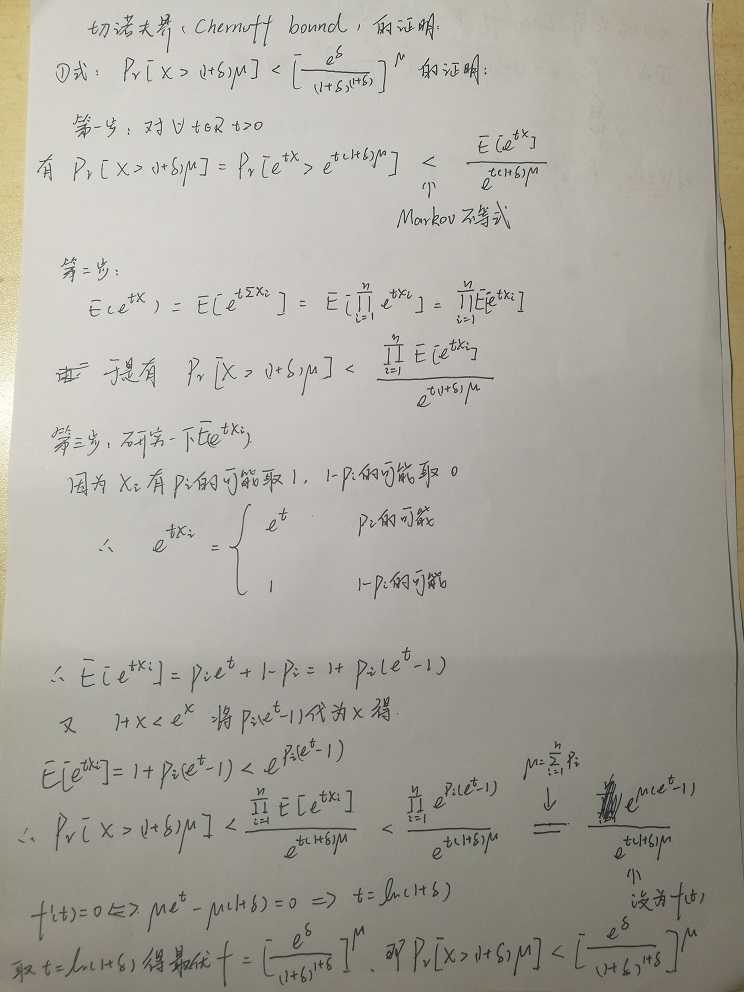 切诺夫界（Chernoff bound）的证明：
①式：Pr[X>(1+δ)μ] < [e^δ/(1+δ)^(1+δ)]^μ 的证明：
第一步：对∀t∈R t>0
有 Pr[X>(1+δ)μ] = Pr[e^{tX}>e^{t(1+δ)μ}] < E[e^{tX}]/e^{t(1+δ)μ}
⇑
Markov不等式
第二步：
E(e^{tX}) = E[e^{tΣXi}] = E[∏_{i=1}^{n} e^{tXi}] = ∏_{i=1}^{n}E[e^{tXi}]
于是有 Pr[X>(1+δ)μ] < ∏_{i=1}^{n} E[e^{tXi}]/e^{t(1+δ)μ}
第三步：研究一下E(e^{tXi})
因为Xi有Pi的可能取1，1-Pi的可能取0
∴ e^{tXi} = { e^t Pi的可能
1 1-Pi的可能
∴ E[e^{tXi}] = Pi e^t + 1-Pi = 1+Pi(e^t-1)
又 1+x<e^x 将Pi(e^t-1)代为x得.
E[e^{tXi}] = 1+Pi(e^t-1) < e^{Pi(e^t-1)}
μ=Σ_{i=1}^{n}Pi
↓
∴ Pr[X>(1+δ)μ] < ∏_{i=1}^{n} E[e^{tXi}]/e^{t(1+δ)μ} < ∏_{i=1}^{n} e^{Pi(e^t-1)}/e^{t(1+δ)μ} = e^{μ(e^t-1)}/e^{t(1+δ)μ}
⇑
设为f(t)
f'(t)=0 <=> μe^t-μ(1+δ)=0 => t=ln(1+δ)
取t=ln(1+δ)得最优f=[e^δ/(1+δ)^{1+δ}]^μ，即Pr[X>(1+δ)μ]<[e^δ/(1+δ)^{1+δ}]^μ